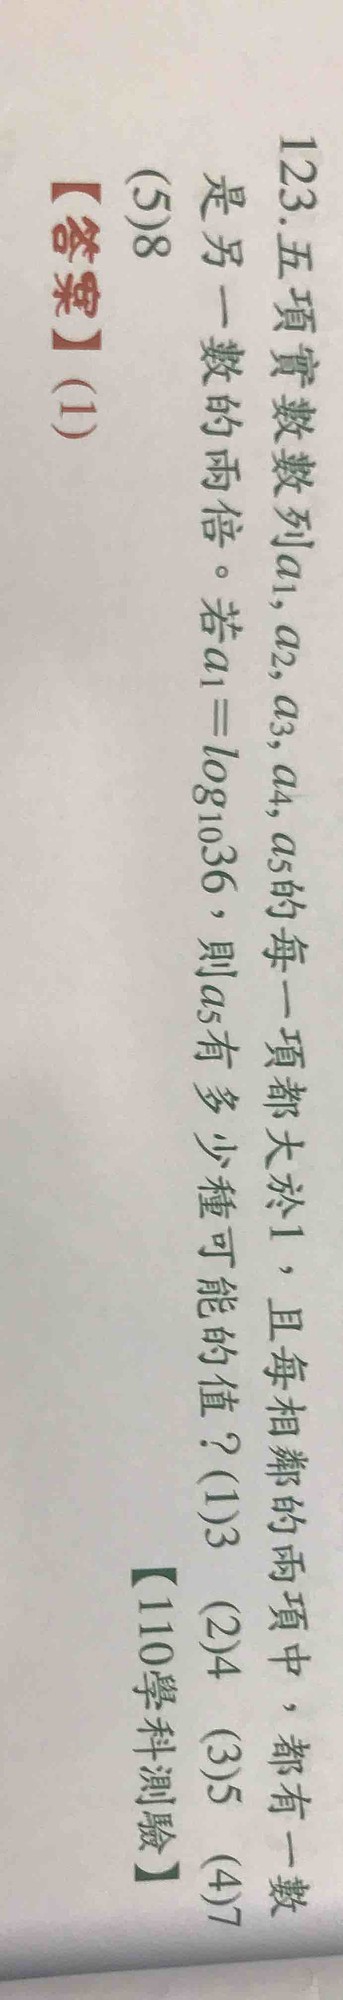 123.五項實數數列a₁, a₂, a₃, a₄, a₅的每一項都大於1，且每相鄰的兩項中，都有一數
是另一數的兩倍。若a₁＝log₁₀36，則a₅有多少種可能的值？(1)3 (2)4 (3)5 (4)7
(5)8 【110學科測驗】
【答案】(1)